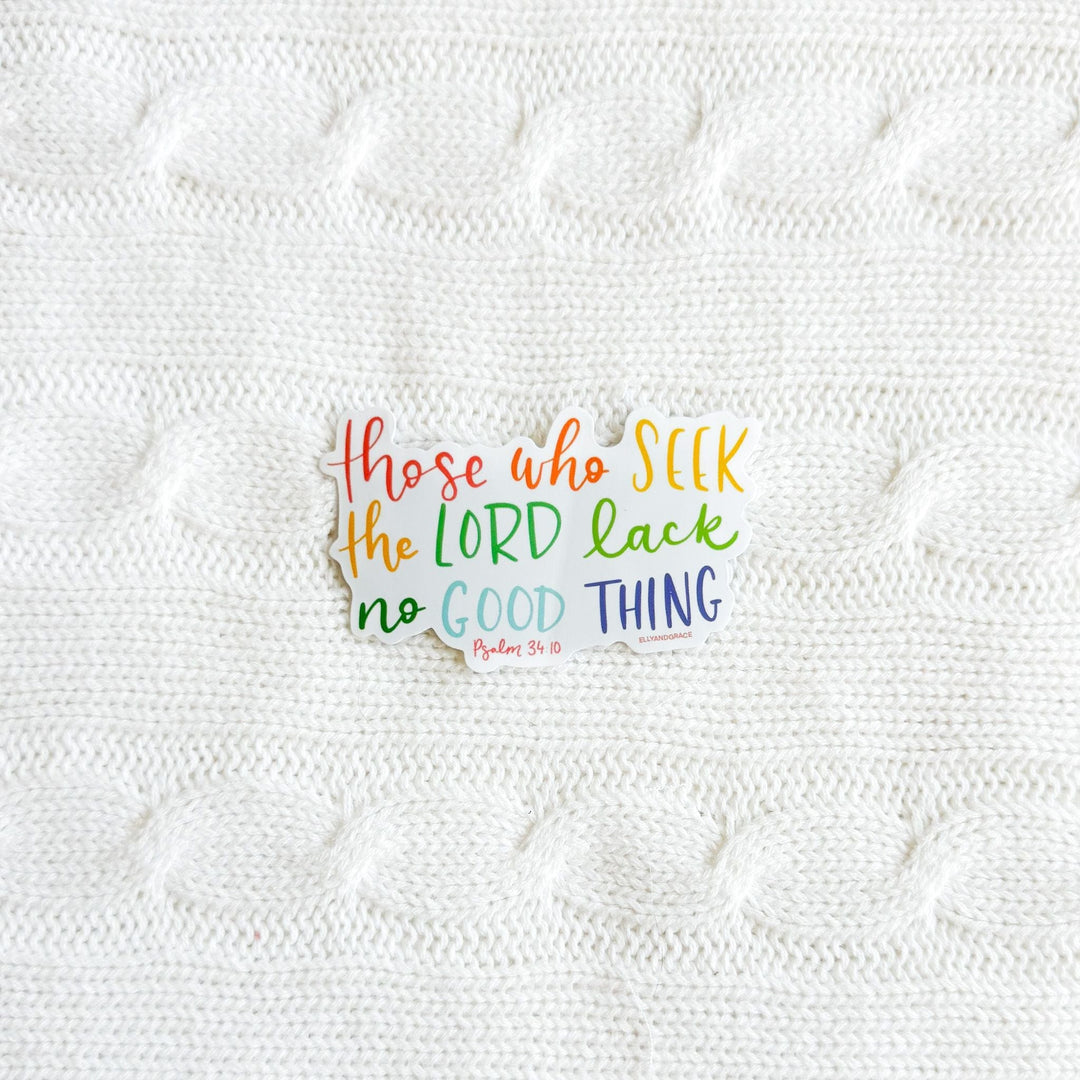 those who SEEK
the LORD lack
no GOOD THING
ELLYANDGRACE
Psalm 34:10